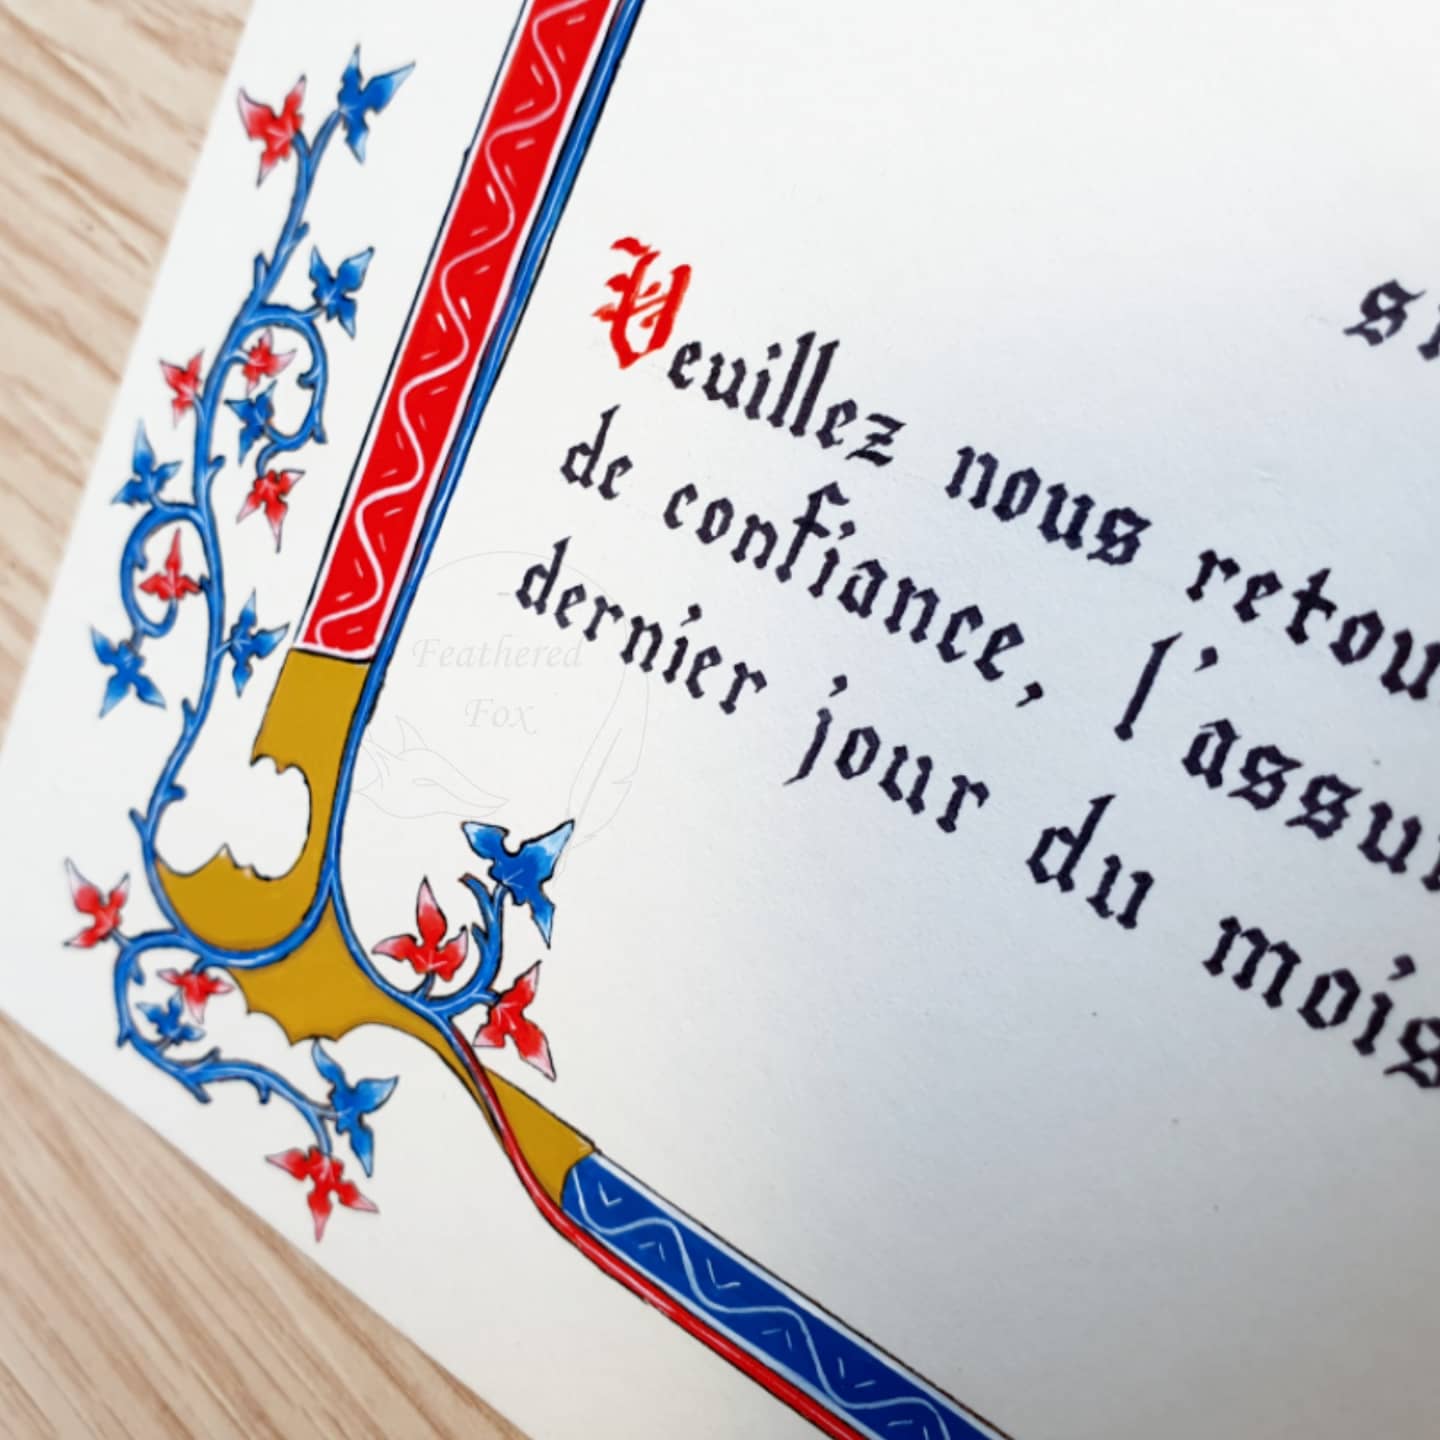 Veuillez nous
de confiance, l'
dernier jour du mois
Feathered
Fox